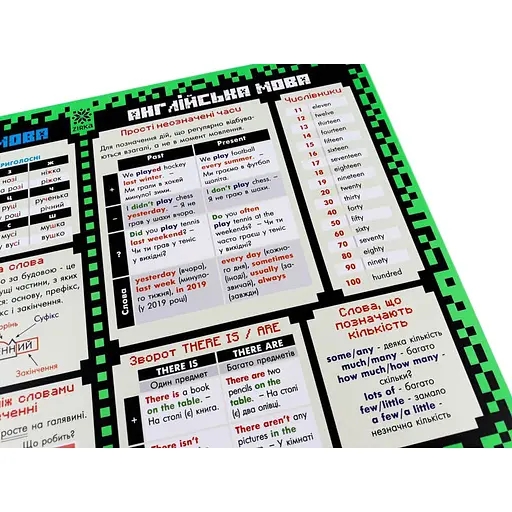 ZIRKA
АНГЛІЙСЬКА МОВА
МОВА
РИГОЛОСНІ
з
ж
нозі
ніжка
разі
ріжок
ц
ч
руці
рученька
річниці
річний
с
ш
мусі
мушка
вусі
вушко
слова
за будовою - це
основу, префікс,
с і закінчення.
Суфікс
ННИЙ
Закінчення
між словами
ченні
росте на галявині.
Що робить?
Прості неозначені часи
Для позначення дій, що регулярно відбува-
ються взагалі, а не в момент мовлення.
Past
Present
+
We played hockey
last winter. –
Ми грали в хокей
минулої зими.
We play football
every summer. –
Ми граємо в футбол
щоліта.
-
I didn't play chess
yesterday. – Я не
грав у шахи вчора.
I don't play chess. –
Я не граю в шахи.
?
Did you play tennis
last weekend? –
Чи ти грав у теніс
у вихідні?
Do you often
play tennis at the
weekends? – Чи ти
часто граєш у теніс
у вихідні?
Слова
yesterday (вчора),
last week (минуло-
го тижня), in 2019
(у 2019 році)
every day (кожно-
го дня), sometimes
(іноді), usually (за-
звичай), always
(завжди)
Зворот THERE IS / ARE
THERE IS
THERE ARE
Один предмет
Багато предметів
+
There is a book
on the table. –
На столі (є) книга.
There are two
pencils on the
table. – На столі
(є) два олівці.
There isn't
There aren't any
pictures in the
– У кімнаті
Числівники
11 eleven
12 twelve
13 thirteen
14 fourteen
15 fifteen
16 sixteen
17 seventeen
18 eighteen
19 nineteen
20 twenty
30 thirty
40 forty
50 fifty
60 sixty
70 seventy
80 eighty
90 ninety
100 hundred
Слова, що
позначають
кількість
some/any - деяка кількість
much/many - багато
how much/how many -
скільки?
lots of - багато
few/little - замало
a few/a little -
незначна кількість